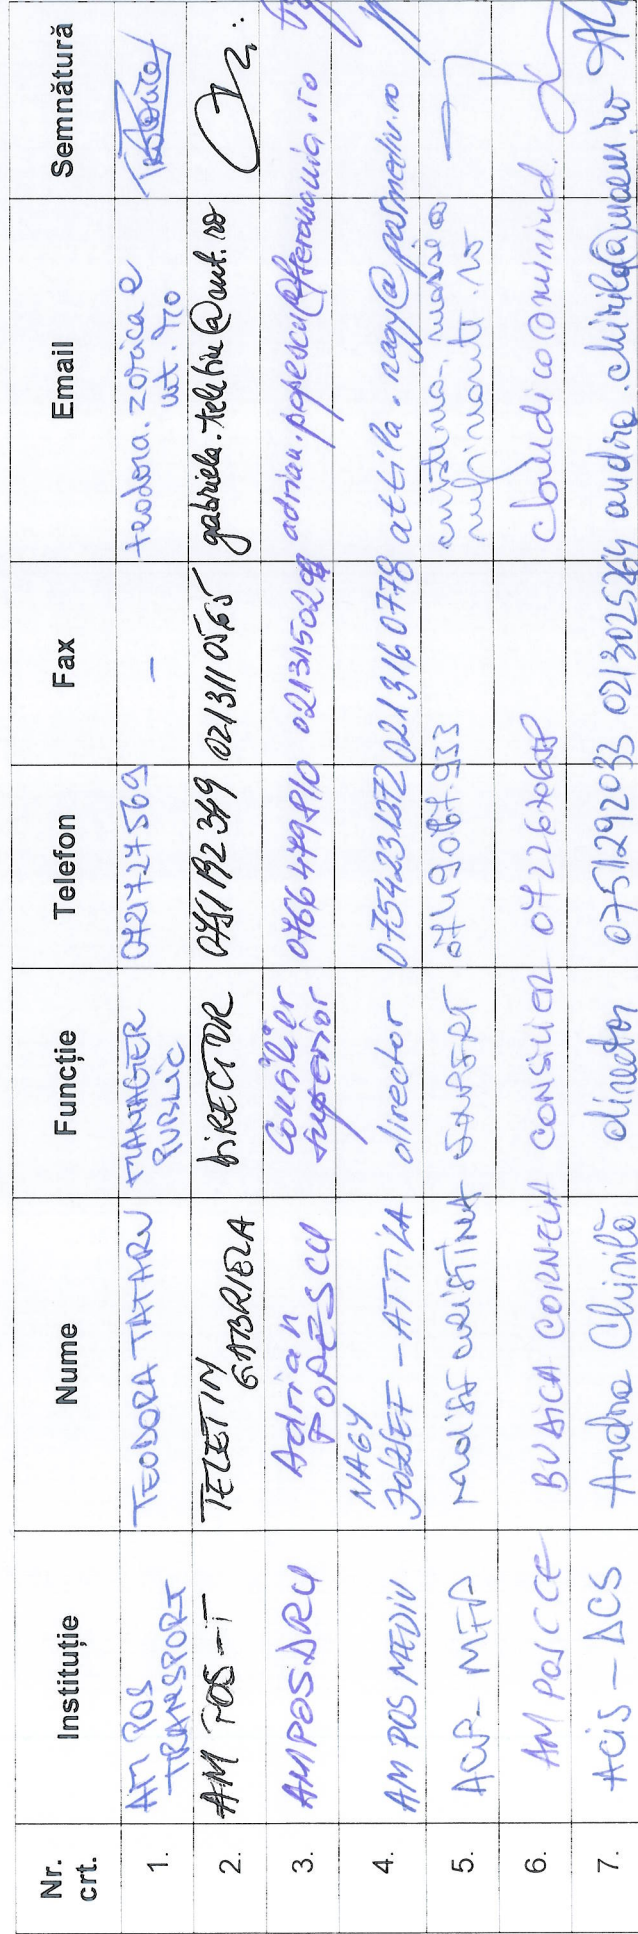 Nr. crt. Instituție Nume Funcție Telefon Fax Email Semnătură
1. AM POS TRANSPORT TEODORA TATARU MANAGER PUBLIC 0721727569 - teodora.zorica@mt.ro
2. AM POS-T TELETIN GABRIELA DIRECTOR 0751192349 0213110565 gabriela.teletin@mt.ro
3. AMPOSDRU Adrian POPESCU Consilier superior 0766479810 adrian.popescu@fseromania.ro
4. AM POS MEDIU NAGY JOZSEF-ATTILA director 0754231372 0213160778 attila.nagy@posmediu.ro
5. ACP-MFP CRISTINA EXPERT
6. AM POS CCE CORNELIA CONSILIER
7. ACIS-DCS Andra Chirilă director 0751292033 0213025264